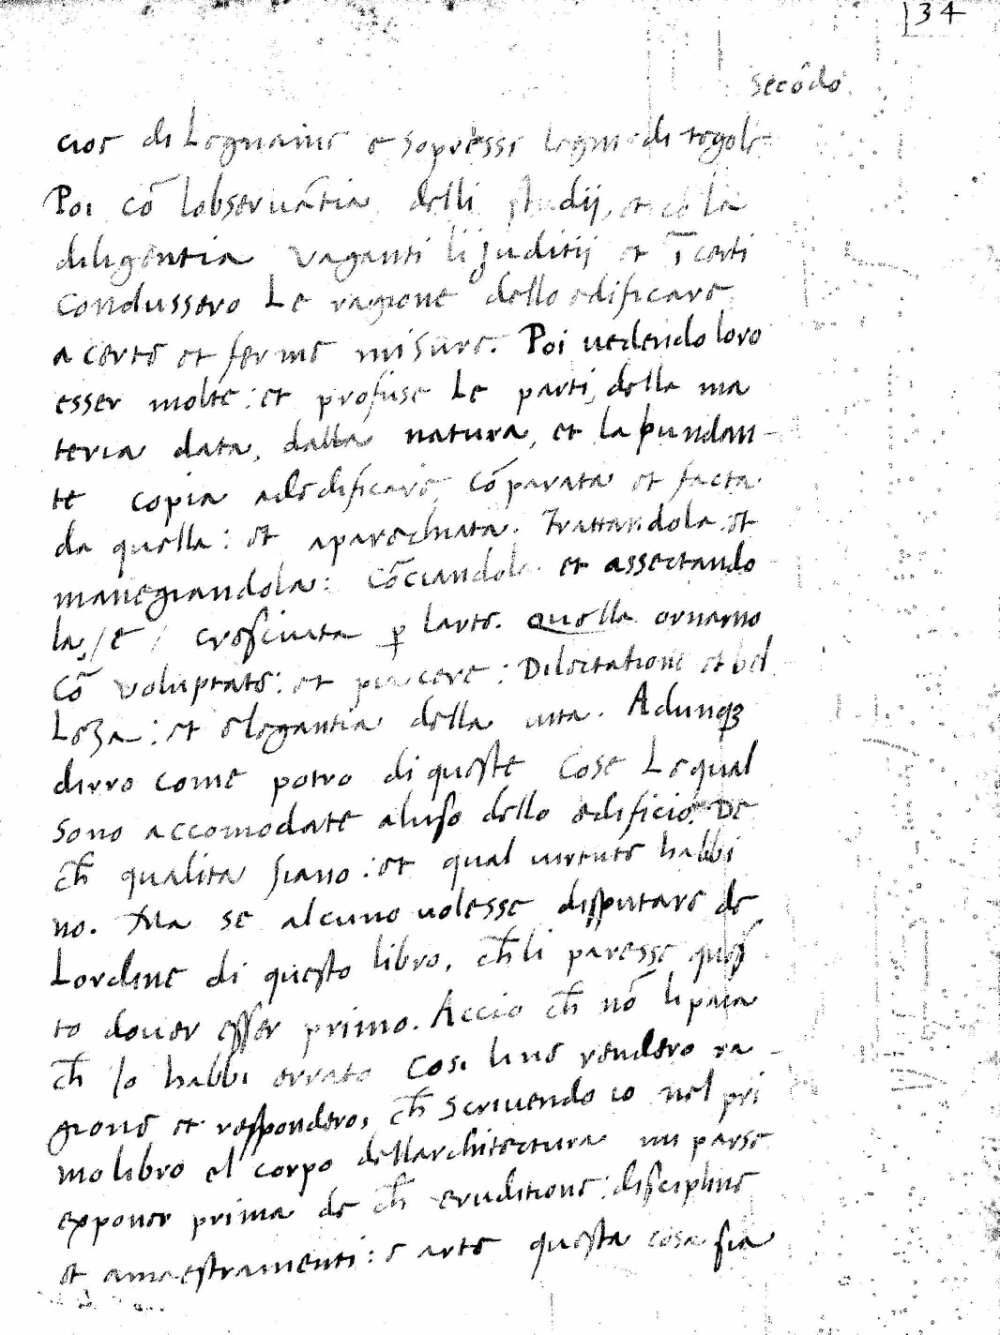 34
Secõdo
cioe di Legname e sopresse legni e di tegole
Poi cõ lobseruãtia delli studij, et cõ la
diligentia vaganti li juditij et ĩcerti
Condussero Le ragione dello edificare
a certe et ferme misure. Poi uedendo loro
esser molte: et profuse Le parti, della ma
teria data, dalla natura, et la þundan-
te copia aledificare, Cõparata et facta
da quella: et aparechiata. Trattandola. et
manegiandola: Cõciandola. et assectando
la, / e / cresciuta ꝑ larte. quella ornarno
Cõ voluptate: et piacere: Dilectatione et bel
Leza: et elegantia della uita. Adunqꝫ
dirro come potro di queste Cose Lequal
sono accomodate aluso dello edificio. De
ch̃ qualita siano: et qual uirtute habbi
no. Ma se alcuno uolesse disputare de
Lordine di questo libro, ch̃li paresse ques
to douer esser primo. Accio ch̃ nõ li paia
ch̃ Io habbi errato Cosi line rendero ra-
gione et respondero, ch̃ Scriuendo io nel pri
mo libro el corpo dellarchitectura mi parse
exponer prima de ch̃ eruditione: discipline
et amaestramenti: e arte questa cosa sia